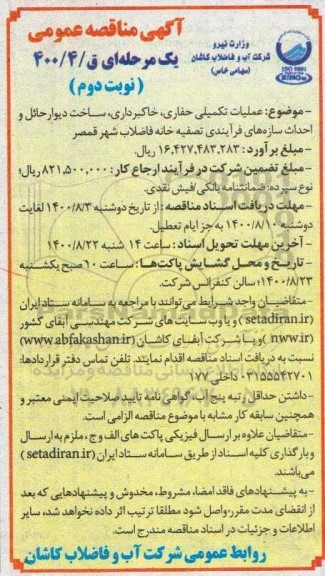 آگهی مناقصه عمومی
وزارت نیرو
شرکت آب و فاضلاب کاشان
(سهامی خاص)
ISO 9001
یک مرحله‌ای ق/۴۰۰/۴
( نوبت دوم )
- موضوع: عملیات تکمیلی حفاری، خاکبرداری، ساخت دیوار حائل و
احداث سازه‌های فرآیندی تصفیه خانه فاضلاب شهر قمصر
- مبلغ برآورد: ۱۶,۴۲۷,۴۸۳,۲۸۳ ریال.
- مبلغ تضمین شرکت در فرآیند ارجاع کار: ۸۲۱,۵۰۰,۰۰۰ ریال؛
نوع سپرده: ضمانتنامه بانکی/فیش نقدی.
- مهلت دریافت اسناد مناقصه: از تاریخ دوشنبه ۱۴۰۰/۸/۳ لغایت
دوشنبه ۱۴۰۰/۸/۱۰ به جز ایام تعطیل.
- آخرین مهلت تحویل اسناد: ساعت ۱۴ شنبه ۱۴۰۰/۸/۲۲
- تاریخ و محل گشایش پاکت‌ها: ساعت ۱۰ صبح یکشنبه
۱۴۰۰/۸/۲۳؛ سالن کنفرانس شرکت.
- متقاضیان واجد شرایط می‌توانند با مراجعه به سامانه ستاد ایران
(setadiran.ir) و یا وب سایت های شرکت مهندسی آبفای کشور
(nww.ir) و یا شرکت آبفای کاشان (www.abfakashan.ir)
نسبت به دریافت اسناد مناقصه اقدام نمایند. تلفن تماس دفتر قراردادها:
۰۳۱۵۵۵۴۲۷۰۱ داخلی ۱۷۷
- داشتن حداقل رتبه پنج آب، گواهی نامه تایید صلاحیت ایمنی معتبر و
همچنین سابقه کار مشابه با موضوع مناقصه الزامی است.
- متقاضیان علاوه بر ارسال فیزیکی پاکت های الف و ج، ملزم به ارسال
و بارگذاری کلیه اسناد از طریق سامانه ستاد ایران (setadiran.ir)
می‌باشند.
- به پیشنهادهای فاقد امضا، مشروط، مخدوش و پیشنهادهایی که بعد
از انقضای مدت مقرر واصل شود مطلقا ترتیب اثر داده نخواهد شد، سایر
اطلاعات و جزئیات در اسناد مناقصه مندرج است.
روابط عمومی شرکت آب و فاضلاب کاشان